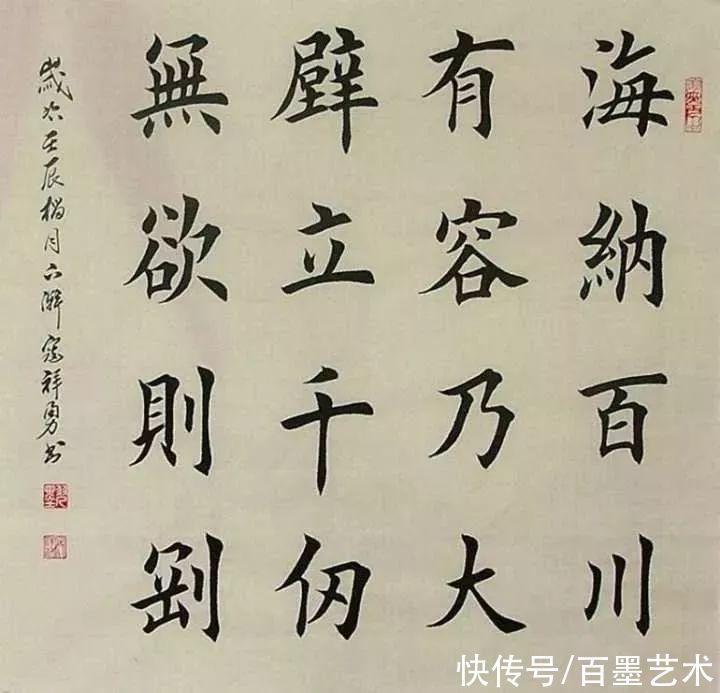 海納百川
有容乃大
壁立千仞
無欲則剛
歲次壬辰榴月下澣寇祥勇书
快传号/百墨艺术